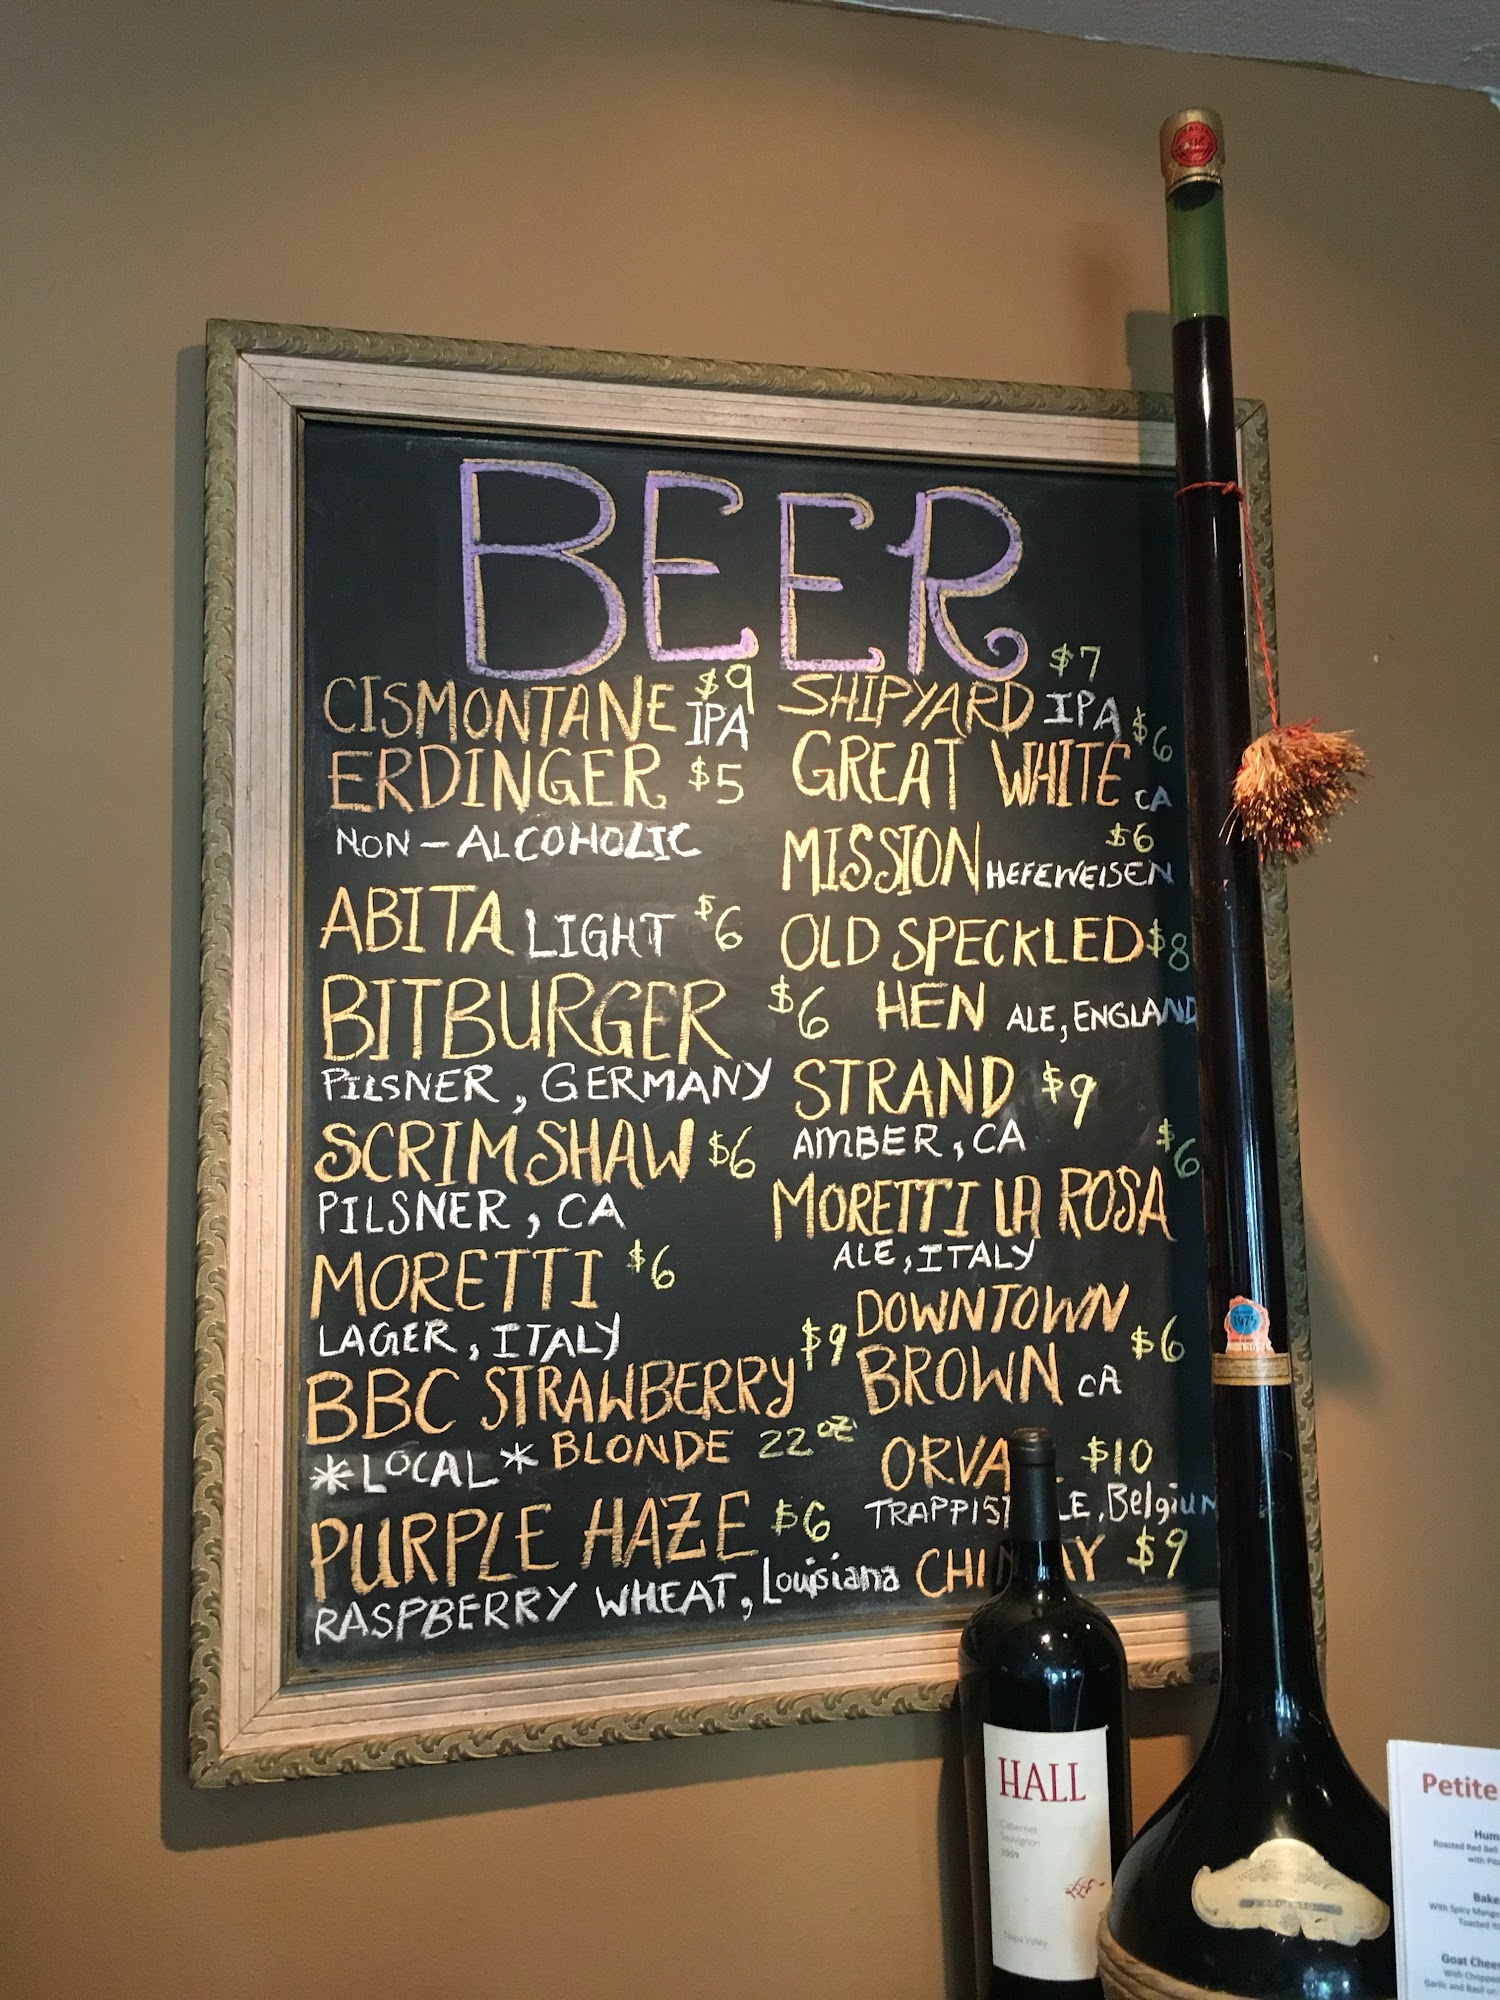 BEER
CISMONTANE $9
IPA
ERDINGER $5
NON-ALCOHOLIC
ABITA LIGHT $6
BITBURGER $6
PILSNER, GERMANY
SCRIMSHAW $6
PILSNER, CA
MORETTI $6
LAGER, ITALY
BBC STRAWBERRY $9
*LOCAL* BLONDE 22 oz
PURPLE HAZE $6
RASPBERRY WHEAT, Louisiana
$7
SHIPYARD IPA
GREAT WHITE $6
CA
MISSION $6
HEFEWEISEN
OLD SPECKLED $8
HEN ALE, ENGLAND
STRAND $9
AMBER, CA
MORETTI LA ROSA $6
ALE, ITALY
DOWNTOWN
BROWN CA $6
ORVA $10
TRAPPIST LE, Belgium
CHI AY $9
HALL
Cabernet
Sauvignon
2009
Napa Valley
1975
Petite
Hum
Roasted Red Bell
with Pita
Bake
With Spicy Mango
Toasted
Goat Chees
With Chopped
Garlic and Basil on